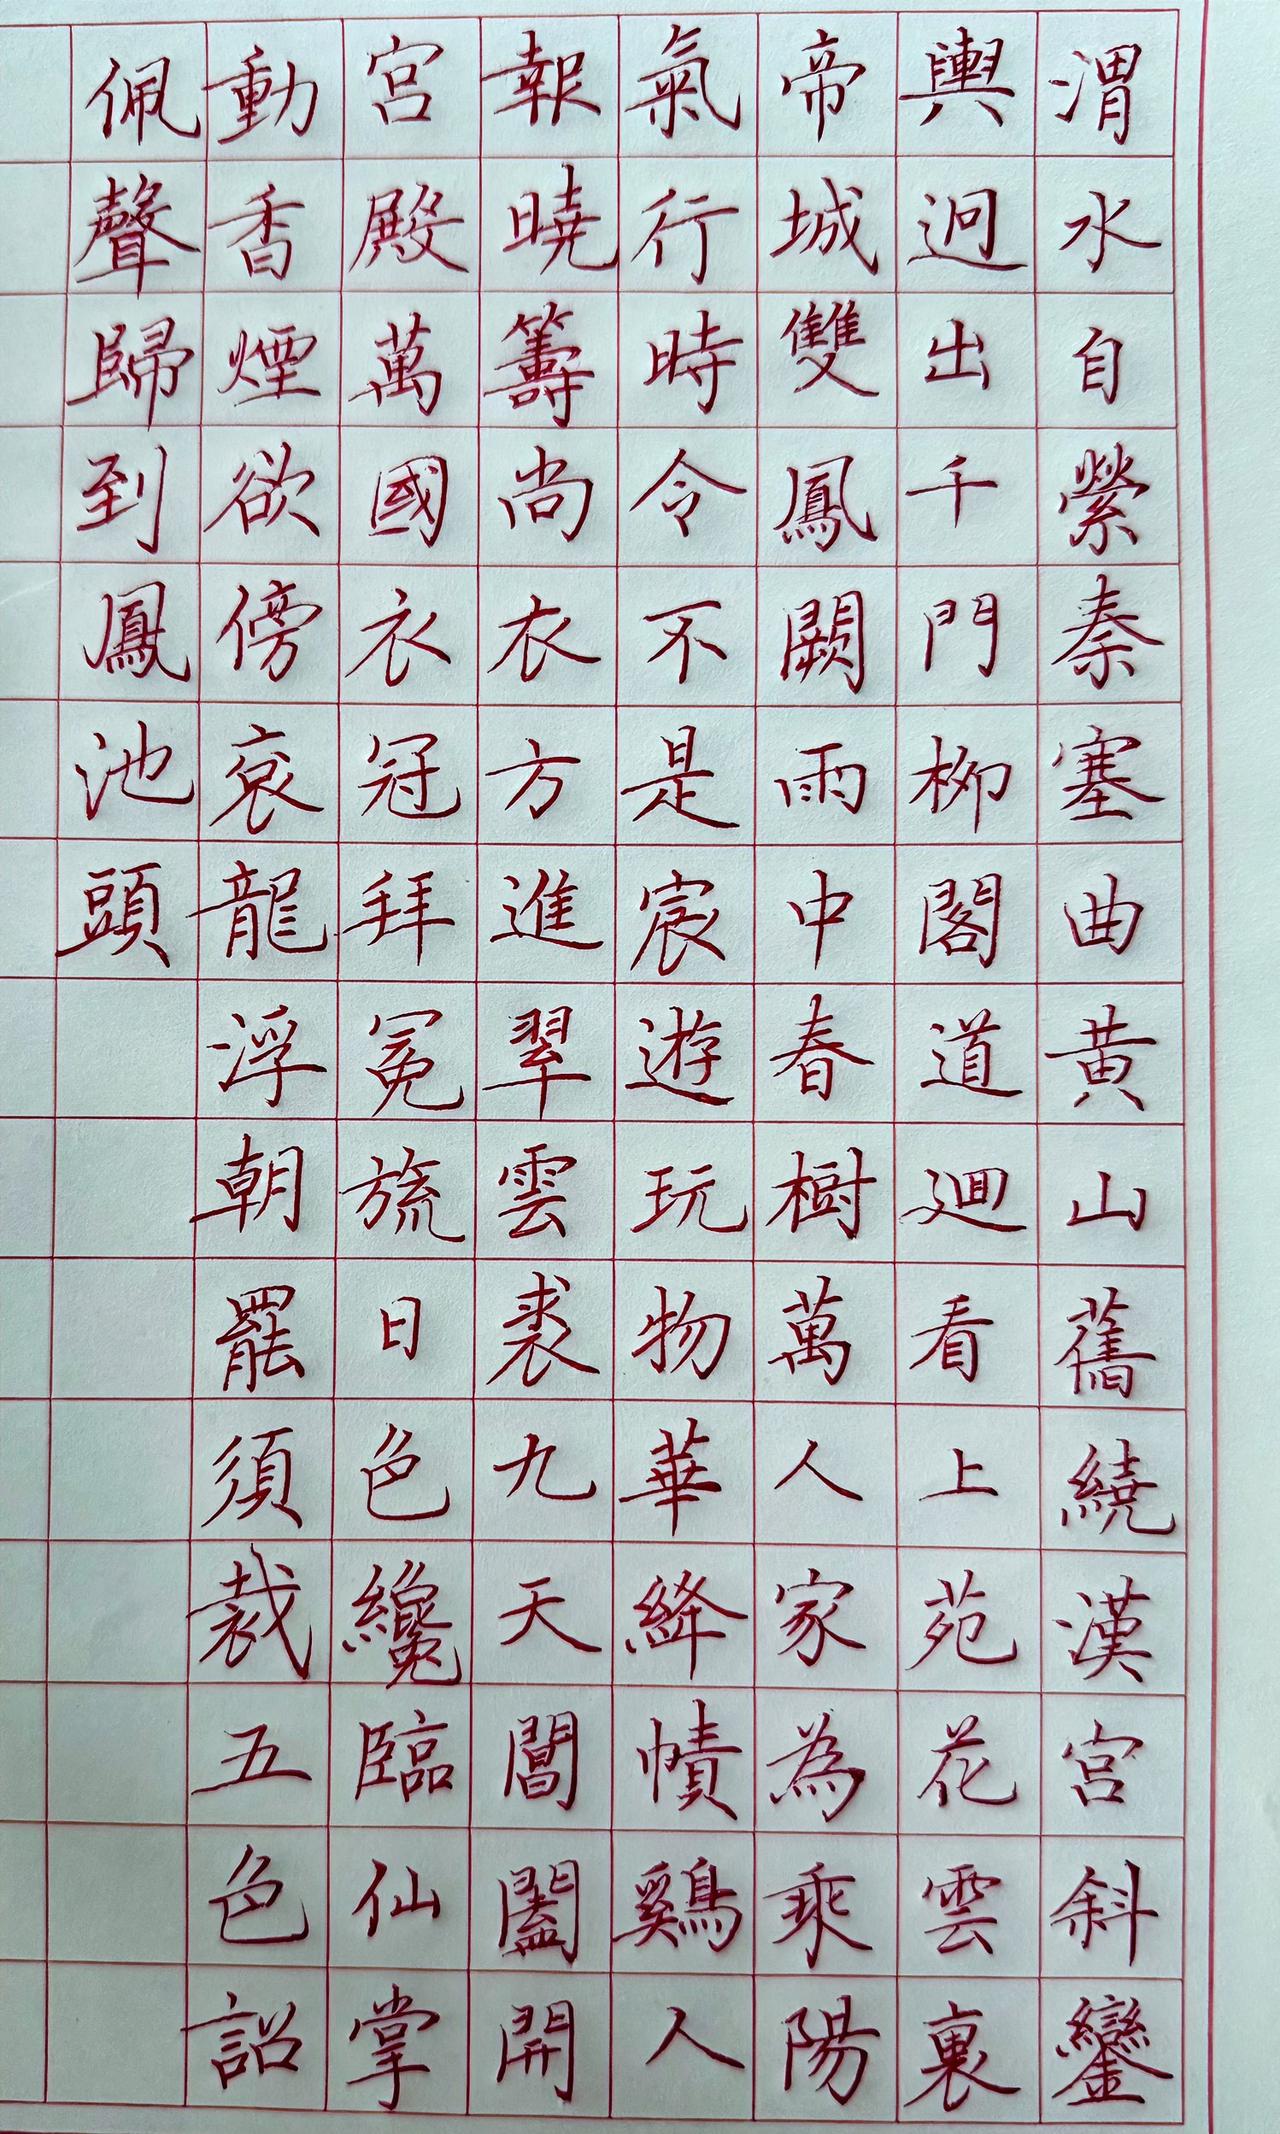 渭水自縈秦塞曲黃山舊繞漢宮斜鑾
輿迥出千門柳閣道迴看上苑花雲裏
帝城雙鳳闕雨中春樹萬人家為乘陽
氣行時令不是宸遊玩物華絳幘鷄人
報曉籌尚衣方進翠雲裘九天閶闔開
宮殿萬國衣冠拜冕旒日色纔臨仙掌
動香煙欲傍袞龍浮朝罷須裁五色詔
佩聲歸到鳳池頭